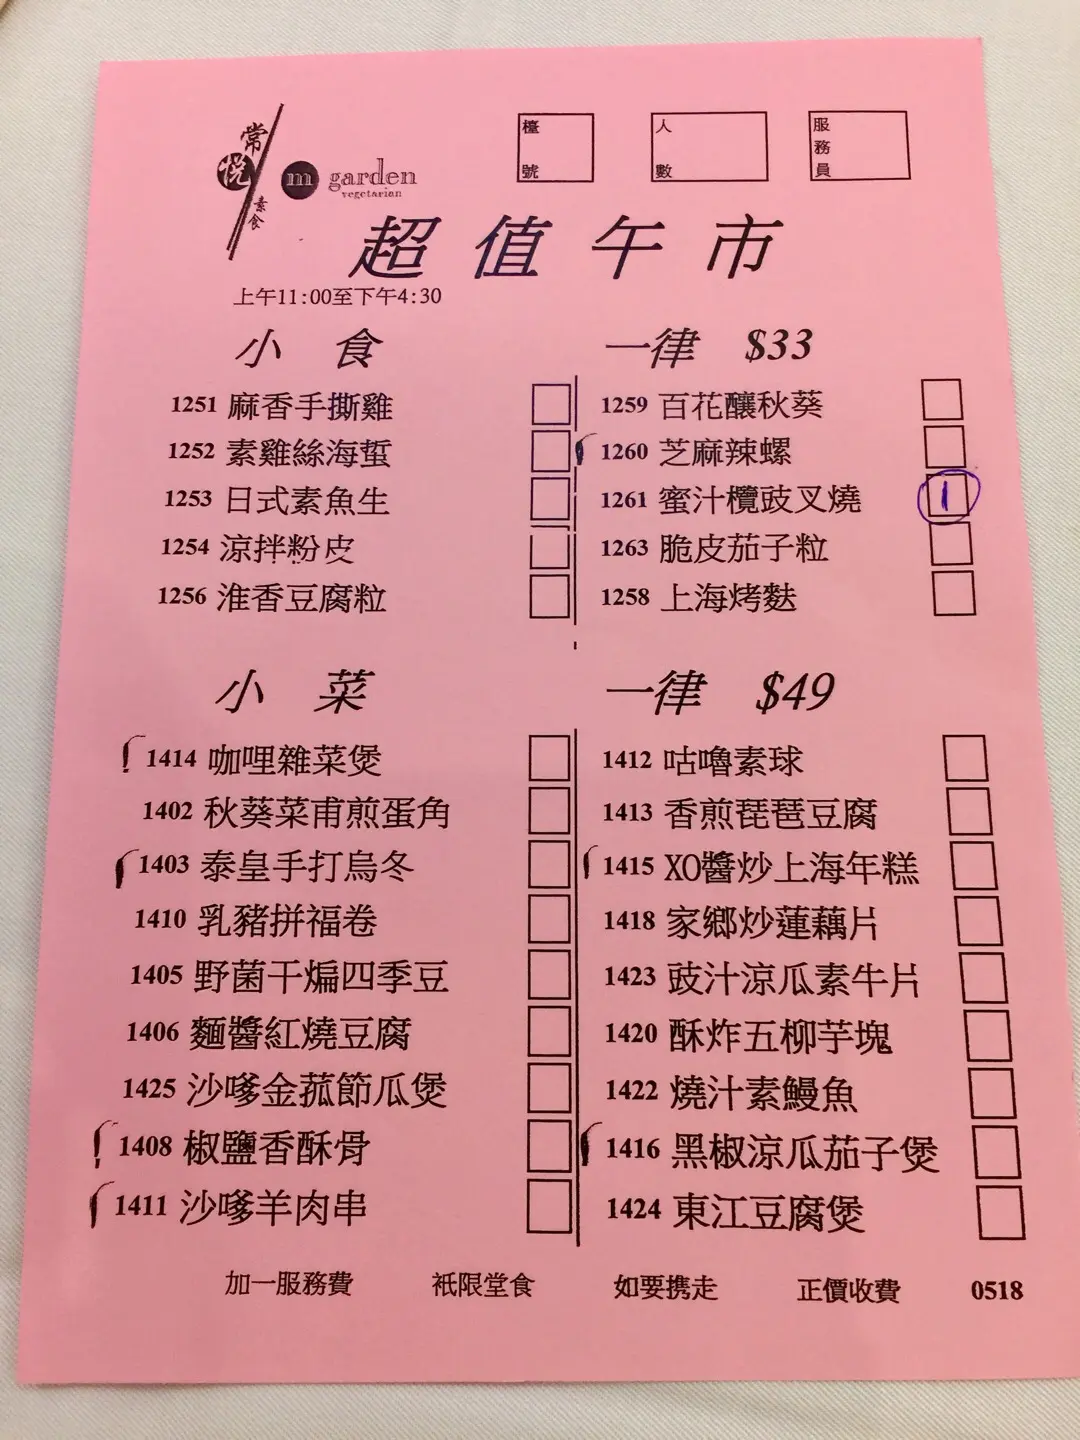 常悅素食
m garden
vegetarian
檯號
人數
服務員
超值午市
上午11:00至下午4:30
小食 一律 $33
1251 麻香手撕雞
1252 素雞絲海蜇
1253 日式素魚生
1254 涼拌粉皮
1256 淮香豆腐粒
1259 百花釀秋葵
1260 芝麻辣螺
1261 蜜汁欖豉叉燒 1
1263 脆皮茄子粒
1258 上海烤麩
小菜 一律 $49
1414 咖哩雜菜煲
1402 秋葵菜甫煎蛋角
1403 泰皇手打烏冬
1410 乳豬拼福卷
1405 野菌干煸四季豆
1406 麵醬紅燒豆腐
1425 沙嗲金菰節瓜煲
1408 椒鹽香酥骨
1411 沙嗲羊肉串
1412 咕嚕素球
1413 香煎琵琶豆腐
1415 XO醬炒上海年糕
1418 家鄉炒蓮藕片
1423 豉汁涼瓜素牛片
1420 酥炸五柳芋塊
1422 燒汁素鰻魚
1416 黑椒涼瓜茄子煲
1424 東江豆腐煲
加一服務費 衹限堂食 如要携走 正價收費 0518